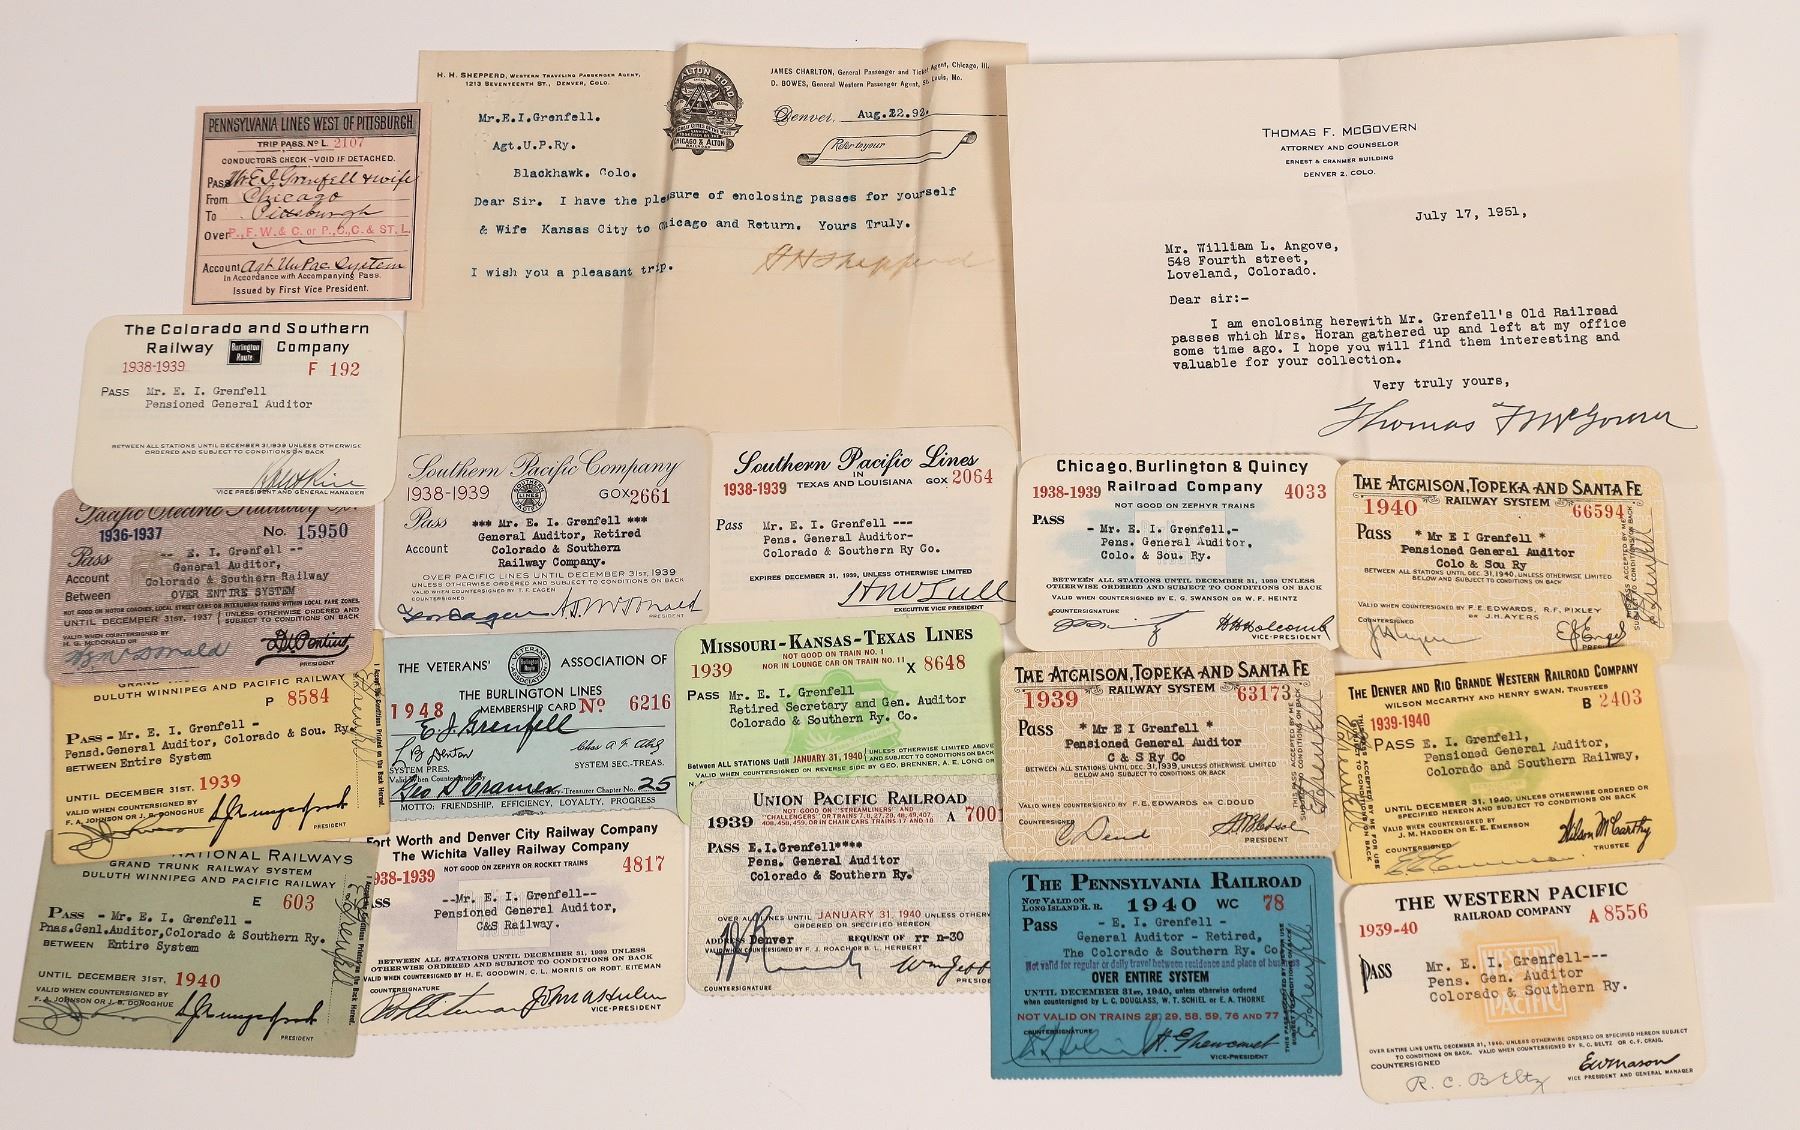 PENNSYLVANIA LINES WEST OF PITTSBURGH
TRIP PASS. Nº L 2107
CONDUCTOR'S CHECK-VOID IF DETACHED.
Pass Mr E. I. Grenfell & wife
From Chicago
To Pittsburgh
Over P., F. W. & C. or P., C., C. & ST. L.
Account Agt Un Pac System
In Accordance with Accompanying Pass.
Issued by First Vice President.
H. H. SHEPPERD, WESTERN TRAVELING PASSENGER AGENT,
1213 SEVENTEENTH ST., DENVER, COLO.
ALTON ROAD
CHICAGO & ALTON
RAILROAD
JAMES CHARLTON, General Passenger and Ticket Agent, Chicago, Ill.
D. BOWES, General Western Passenger Agent, St. Louis, Mo.
Denver, Aug.22.92.
Refer to your
Mr.E.I.Grenfell.
Agt.U.P.Ry.
Blackhawk. Colo.
Dear Sir. I have the pleasure of enclosing passes for yourself
& Wife Kansas City to Chicago and Return. Yours Truly.
I wish you a pleasant trip.
H H Shepperd
THOMAS F. MCGOVERN
ATTORNEY AND COUNSELOR
ERNEST & CRANMER BUILDING
DENVER 2, COLO.
July 17, 1951,
Mr. William L. Angove,
548 Fourth street,
Loveland, Colorado.
Dear sir:-
I am enclosing herewith Mr. Grenfell's Old Railroad
passes which Mrs. Horan gathered up and left at my office
some time ago. I hope you will find them interesting and
valuable for your collection.
Very truly yours,
Thomas F McGovern
The Colorado and Southern
Railway Burlington Route Company
1938-1939 F 192
PASS Mr. E. I. Grenfell
Pensioned General Auditor
BETWEEN ALL STATIONS UNTIL DECEMBER 31,1939 UNLESS OTHERWISE
ORDERED AND SUBJECT TO CONDITIONS ON BACK
VICE PRESIDENT AND GENERAL MANAGER
Pacific Electric Railway Co.
1936-1937 No. 15950
Pass -- E. I. Grenfell --
Account General Auditor,
Colorado & Southern Railway
Between OVER ENTIRE SYSTEM
NOT GOOD ON MOTOR COACHES, LOCAL STREET CARS OR INTERURBAN TRAINS WITHIN LOCAL FARE ZONES.
UNTIL DECEMBER 31ST, 1937 UNLESS OTHERWISE ORDERED AND SUBJECT TO CONDITIONS ON BACK
VALID WHEN COUNTERSIGNED BY
H. G. McDONALD OR
PRESIDENT
Southern Pacific Company
1938-1939 SOUTHERN PACIFIC LINES GOX 2661
Pass *** Mr. E. I. Grenfell ***
General Auditor, Retired
Account Colorado & Southern
Railway Company.
OVER PACIFIC LINES UNTIL DECEMBER 31ST, 1939
UNLESS OTHERWISE ORDERED AND SUBJECT TO CONDITIONS ON BACK
VALID WHEN COUNTERSIGNED BY T. F. EAGEN
COUNTERSIGNED
Southern Pacific Lines
IN
TEXAS AND LOUISIANA
1938-1939 GOX 2064
Pass Mr. E. I. Grenfell ---
Pens. General Auditor-
Colorado & Southern Ry Co.
EXPIRES DECEMBER 31, 1939, UNLESS OTHERWISE LIMITED
EXECUTIVE VICE PRESIDENT
Chicago, Burlington & Quincy
Railroad Company
1938-1939 4033
NOT GOOD ON ZEPHYR TRAINS
PASS - Mr. E. I. Grenfell,-
Pens. General Auditor,
Colo. & Sou. Ry.
BETWEEN ALL STATIONS UNTIL DECEMBER 31, 1939 UNLESS
OTHERWISE ORDERED AND SUBJECT TO CONDITIONS ON BACK
VALID WHEN COUNTERSIGNED BY E. G. SWANSON OR W. F. HEINTZ
COUNTERSIGNATURE
VICE-PRESIDENT
THE ATCHISON, TOPEKA AND SANTA FE
RAILWAY SYSTEM
1940 66594
Pass * Mr E I Grenfell *
Pensioned General Auditor
Colo & Sou Ry
BETWEEN ALL STATIONS UNTIL DEC.31,1940, UNLESS OTHERWISE LIMITED
BELOW AND SUBJECT TO CONDITIONS ON BACK
VALID WHEN COUNTERSIGNED BY F. E. EDWARDS, R.F. PIXLEY
OR J.H. AYERS
PRESIDENT
DULUTH WINNIPEG AND PACIFIC RAILWAY
P 8584
PASS - Mr. E. I. Grenfell -
Pensd.General Auditor, Colorado & Sou. Ry.
BETWEEN Entire System
UNTIL DECEMBER 31ST. 1939
VALID WHEN COUNTERSIGNED BY
F. A. JOHNSON OR J. B. DONOGHUE
PRESIDENT
I Accept the Conditions Printed on the Back Hereof.
THE VETERANS' ASSOCIATION OF
THE BURLINGTON LINES
1948 MEMBERSHIP CARD No 6216
E. I. Grenfell
SYSTEM PRES. SYSTEM SEC.-TREAS.
Geo S. Cramer
Secretary-Treasurer Chapter No. 25
MOTTO: FRIENDSHIP, EFFICIENCY, LOYALTY, PROGRESS
MISSOURI-KANSAS-TEXAS LINES
1939 NOT GOOD ON TRAIN NO. 1
NOR IN LOUNGE CAR ON TRAIN NO. 11 X 8648
PASS Mr. E. I. Grenfell
Retired Secretary and Gen. Auditor
Colorado & Southern Ry. Co.
Between ALL STATIONS Until JANUARY 31, 1940 UNLESS OTHERWISE LIMITED ABOVE AND SUBJECT TO CONDITIONS ON BACK
VALID WHEN COUNTERSIGNED ON REVERSE SIDE BY GEO. BRENNER, A. E. LONG OR
THE ATCHISON, TOPEKA AND SANTA FE
RAILWAY SYSTEM
1939 63173
Pass * Mr E I Grenfell *
Pensioned General Auditor
C & S Ry Co
BETWEEN ALL STATIONS UNTIL DEC.31,1939, UNLESS OTHERWISE LIMITED
BELOW AND SUBJECT TO CONDITIONS ON BACK
VALID WHEN COUNTERSIGNED BY F. E. EDWARDS OR C. DOUD
COUNTERSIGNED
PRESIDENT
THE DENVER AND RIO GRANDE WESTERN RAILROAD COMPANY
WILSON McCARTHY AND HENRY SWAN, TRUSTEES
1939-1940 B 2403
PASS E. I. Grenfell,
Pensioned General Auditor,
Colorado and Southern Railway,
UNTIL DECEMBER 31, 1940, UNLESS OTHERWISE ORDERED OR
SPECIFIED HEREON AND SUBJECT TO CONDITIONS ON BACK
VALID WHEN COUNTERSIGNED BY
J. M. HADDEN OR E. E. EMERSON
COUNTERSIGNED
Wilson McCarthy
TRUSTEE
NATIONAL RAILWAYS
GRAND TRUNK RAILWAY SYSTEM
DULUTH WINNIPEG AND PACIFIC RAILWAY
E 603
PASS - Mr. E. I. Grenfell -
Pnas.Genl.Auditor,Colorado & Southern Ry.
BETWEEN Entire System
UNTIL DECEMBER 31ST. 1940
VALID WHEN COUNTERSIGNED BY
F. A. JOHNSON OR J. B. DONOGHUE
PRESIDENT
I Accept the Conditions Printed on the Back Hereof.
Fort Worth and Denver City Railway Company
The Wichita Valley Railway Company
1938-1939 NOT GOOD ON ZEPHYR OR ROCKET TRAINS 4817
PASS --Mr. E. I. Grenfell--
Pensioned General Auditor,
C&S Railway.
BETWEEN ALL STATIONS UNTIL DECEMBER 31, 1939 UNLESS
OTHERWISE ORDERED AND SUBJECT TO CONDITIONS ON BACK
VALID WHEN COUNTERSIGNED BY H. E. GOODWIN, C. L. MORRIS OR ROBT. EITEMAN
COUNTERSIGNATURE
VICE-PRESIDENT
UNION PACIFIC RAILROAD
1939 NOT GOOD ON "STREAMLINERS" AND A 7001
PASS E.I.Grenfell****
Pens. General Auditor
Colorado & Southern Ry.
OVER ALL LINES UNTIL JANUARY 31, 1940 UNLESS OTHERWISE
ORDERED OR SPECIFIED HEREON
ADDRESS Denver REQUEST OF rr n-30
VALID WHEN COUNTERSIGNED BY F. J. ROACH OR B. L. HERBERT
COUNTERSIGNATURE
THE PENNSYLVANIA RAILROAD
NOT VALID ON
LONG ISLAND R. R. 1940 WC 78
Pass - E. I. Grenfell -
General Auditor - Retired,
The Colorado & Southern Ry. Co.
Not valid for regular or daily travel between residence and place of business
OVER ENTIRE SYSTEM
UNTIL DECEMBER 31st, 1940, unless otherwise ordered
when countersigned by L. C. DOUGLASS, W. T. SCHIEL or E. A. THORNE
NOT VALID ON TRAINS 28, 29, 58, 59, 76 AND 77
COUNTERSIGNATURE
VICE-PRESIDENT
THE WESTERN PACIFIC
RAILROAD COMPANY
1939-40 A 8556
PASS Mr. E. I. Grenfell---
Pens. Gen. Auditor
Colorado & Southern Ry.
WESTERN PACIFIC
OVER ENTIRE LINE UNTIL DECEMBER 31, 1940, UNLESS OTHERWISE ORDERED OR SPECIFIED HEREON SUBJECT
TO CONDITIONS ON BACK. VALID WHEN COUNTERSIGNED BY R. C. BELTZ OR C. F. CRAIG.
COUNTERSIGNED
R. C. Beltz
E W Mason
VICE PRESIDENT AND GENERAL MANAGER